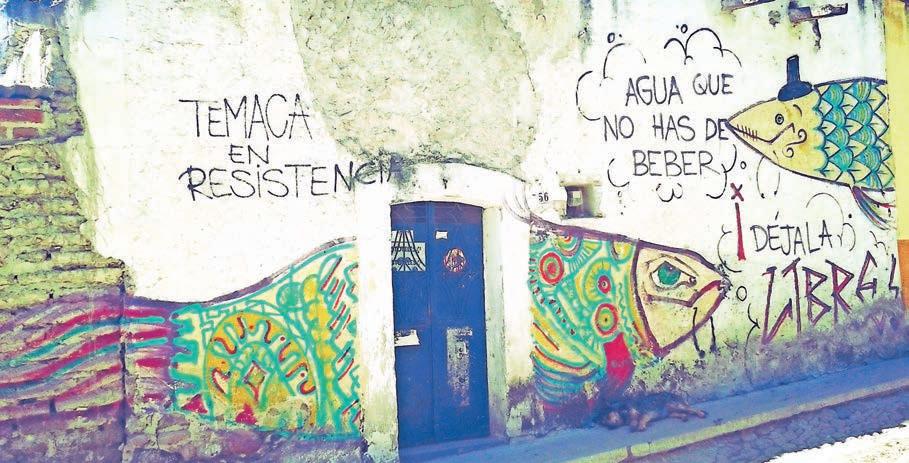 TEMACA
EN
RESISTENCIA
56
AGUA QUE
NO HAS DE
BEBER
¡ DÉJALA
LIBRE!